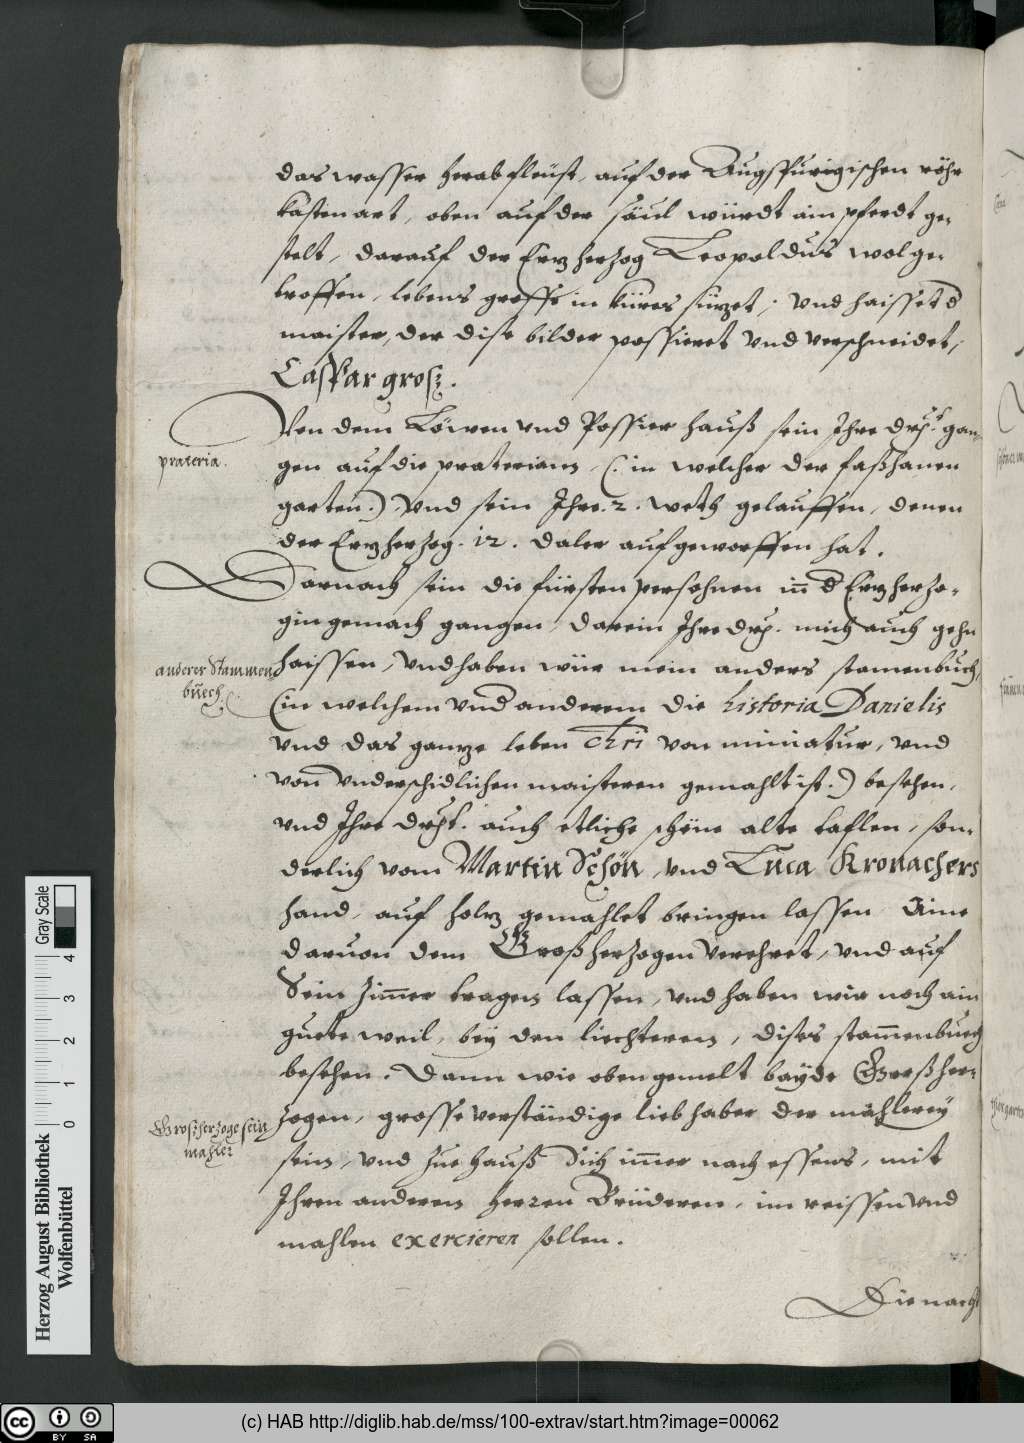 das wasser herab fleüst, auf der Augspurigischen röhr
kasten art, oben auf der säul würdt ain pferdt ge-
stelt, darauf der Erzherzog Leopoldus wol ge-
troffen, lebens gröss in küres sizet; vnd haisset d
maister, der dise bilder possieret vnd verschneidet,
Caspar grosz.
Von dem Löwen vnd Possier hauß sein Ihre drl. gan-
prateria.
gen auf die praterians, (: in welcher der faßhanen
garten.) Vnd sein Ihre .2. weth gelauffen, denen
der Erzherzog .12. daler aufgeworffen hat.
Darnach sein die fürsten persohnen in d Erzherzo-
gin gemach gangen, darein Ihre drl. mich auch gehn
anderer Stammen
büech.
haissen, vnd haben wür mein anders stamenbuch,
(in welchem vnd anderem die historia Danielis
vnd das ganze leben Chri von miniatur, vnd
von vnderschidlichen maisteren gemahlt ist.) besehen,
vnd Ihre drht. auch etliche schöne alte taflen, son-
derlich vom Martin Schön, vnd Luca Kronachers
hand, auf holz gemahlet bringen lassen Aine
daruon dem Großherzogen verehret, vnd auf
Sein zimer tragen lassen, vnd haben wir noch ain
guete weil, bey den liechteren, dises stamenbuech
besehen. Dann wie oben gemelt bayde Großher-
Großherzoge sein
mahler
zogen, grosse verständige liebhaber der mahlerey
sein, vnd zue hauß sich imer nach essens, mit
Ihren anderen herren Brüederen, im reissen vnd
mahlen exercieren sollen.
Die nacht
Herzog August Bibliothek
Wolfenbüttel
0 1 2 3 4
Gray Scale
cc BY SA
(c) HAB http://diglib.hab.de/mss/100-extrav/start.htm?image=00062